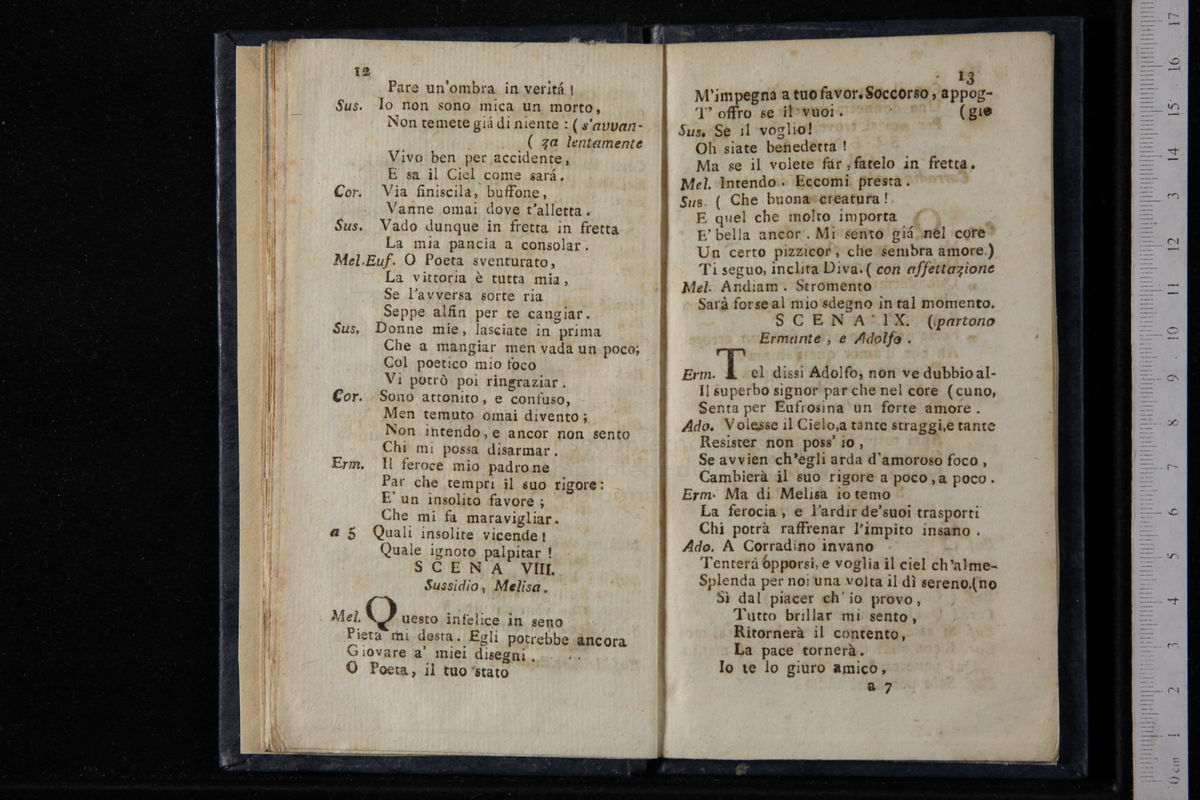 12
Pare un'ombra in veritá !
Sus. Io non sono mica un morto,
Non temete giá di niente : ( s'avvan-
( za lentamente
Vivo ben per accidente,
E sa il Ciel come sará.
Cor. Via finiscila, buffone,
Vanne omai dove t'alletta.
Sus. Vado dunque in fretta in fretta
La mia pancia a consolar.
Mel.Euf. O Poeta sventurato,
La vittoria è tutta mia,
Se l'avversa sorte ria
Seppe alfin per te cangiar.
Sus. Donne mie, lasciate in prima
Che a mangiar men vada un poco;
Col poetico mio foco
Vi potrò poi ringraziar.
Cor. Sono attonito, e confuso,
Men temuto omai divento;
Non intendo, e ancor non sento
Chi mi possa disarmar.
Erm. Il feroce mio padrone
Par che tempri il suo rigore:
E' un insolito favore;
Che mi fa maravigliar.
a 5 Quali insolite vicende!
Quale ignoto palpitar !
SCENA VIII.
Sussidio, Melisa.
Mel. Questo infelice in seno
Pietà mi desta. Egli potrebbe ancora
Giovare a' miei disegni.
O Poeta, il tuo stato
13
M'impegna a tuo favor. Soccorso, appog-
T' offro se il vuoi. (gio
Sus. Se il voglio!
Oh siate benedetta !
Ma se il volete far, fatelo in fretta.
Mel. Intendo. Eccomi presta.
Sus. ( Che buona creatura!
E quel che molto importa
E' bella ancor. Mi sento giá nel core
Un certo pizzicor, che sembra amore.)
Ti seguo, inclita Diva. ( con affettazione
Mel. Andiam. Stromento
Sarà forse al mio sdegno in tal momento.
SCENA IX. (partono
Ermante, e Adolfo.
Erm. Tel dissi Adolfo, non ve dubbio al-
Il superbo signor par che nel core (cuno,
Senta per Eufrosina un forte amore.
Ado. Volesse il Cielo,a tante straggi,e tante
Resister non poss' io,
Se avvien ch'egli arda d'amoroso foco,
Cambierà il suo rigore a poco, a poco.
Erm. Ma di Melisa io temo
La ferocia, e l'ardir de'suoi trasporti
Chi potrà raffrenar l'impito insano.
Ado. A Corradino invano
Tenterà opporsi, e voglia il ciel ch'alme-
Splenda per noi una volta il dì sereno.(no
Sì dal piacer ch' io provo,
Tutto brillar mi sento,
Ritornerà il contento,
La pace tornerà.
Io te lo giuro amico,
a 7
0 cm 1 2 3 4 5 6 7 8 9 10 11 12 13 14 15 16 17